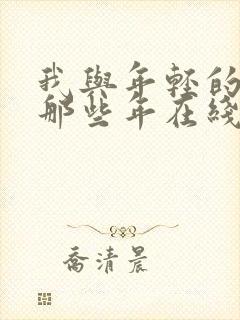 我與年輕的
那些年在綫
喬清晨